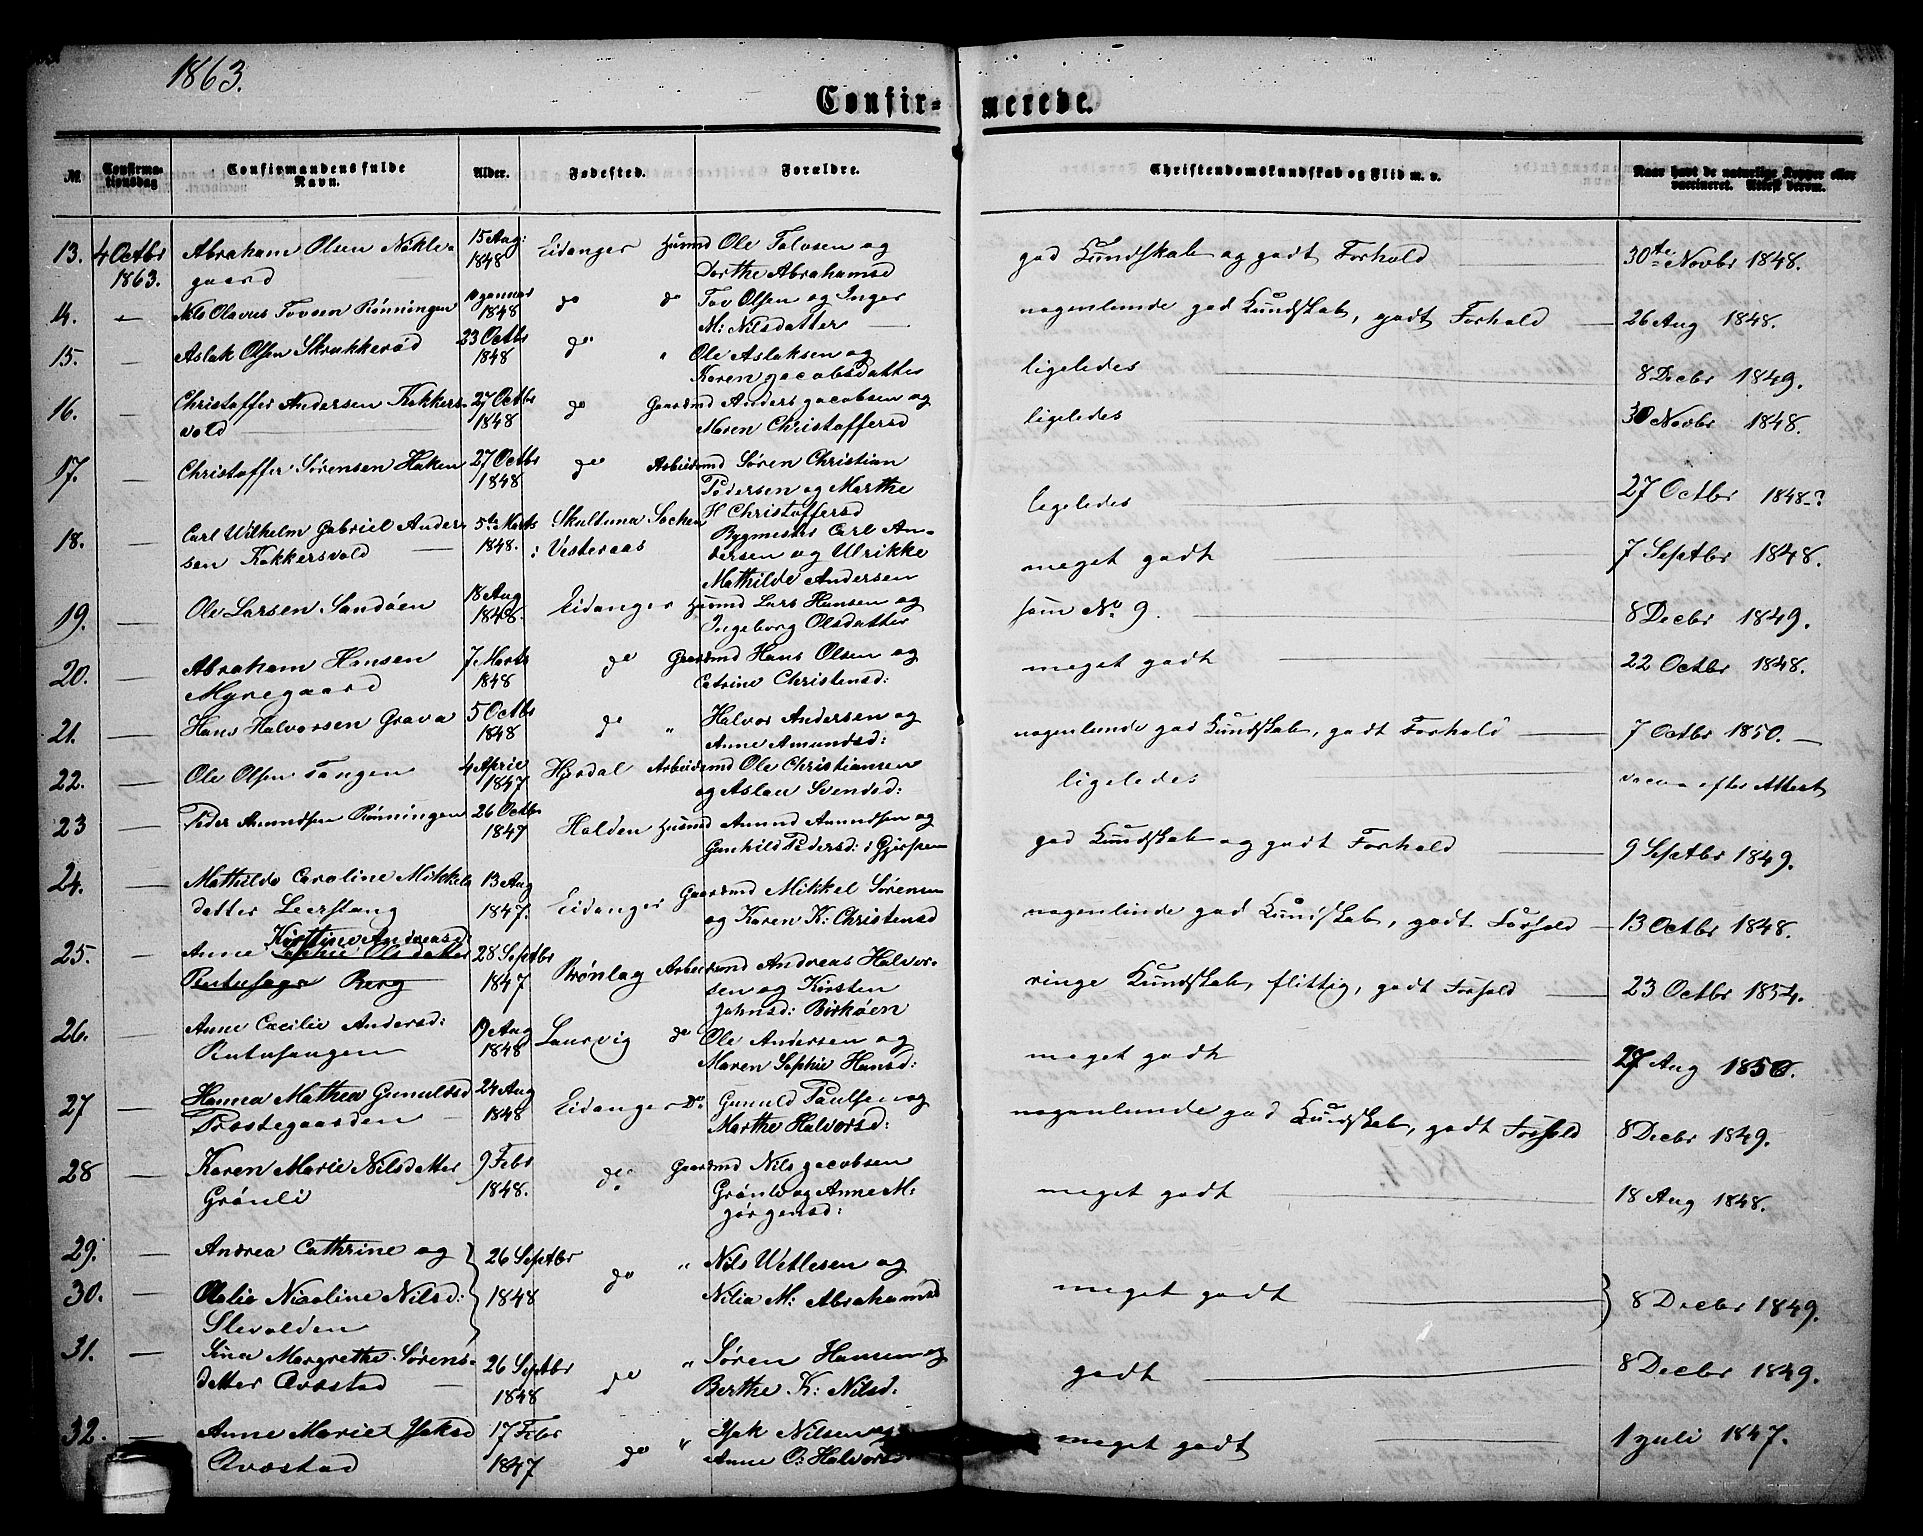 1863.
Confir- merede.
№ Confirma-tionsdag Confirmandens fulde Navn. Alder. Fødested. Forældre. Christendomskundskab og Flid m. v. Naar havt de naturlige Kopper eller vaccineret. Attest derom.
13. 4 Octbr 1863. Abraham Olsen Nøkle- 15 Aug: 1848 Eidanger Husmd Ole Tolvsen og god Kundskab og godt Forhold 30te Novbr 1848.
gaard Dorthe Abrahamsd
14. — Nils Olavus Tovsen Rønningen 1848 do do Tov Olsen og Inger nogenlunde god Kundskab, godt Forhold 26 Aug 1848.
M: Nilsdatter
15. — Aslak Olsen Skrukkerød 23 Octbr 1848 do " Ole Aslaksen og ligeledes 8 Decbr 1849.
Karen Jacobsdatter
16. — Christoffer Andersen Kokkers- 27 Octbr 1848 do Gaardmd Anders Jacobsen og ligeledes 30 Novbr 1848.
vold Maren Christoffersd
17. — Christoffer Sørensen Haken 27 Octbr 1848 do Arbeidsmd Søren Christian ligeledes 27 Octbr 1848-?
Pedersen og Marthe
H Christoffersd
18. — Carl Wilhelm Gabriel Ander- 5te Marts 1848. Skultuna Sochen Bygmester Carl An- meget godt 7 Septbr 1848.
sen Kokkersvold i Vesteraas dersen og Ulrikke
Mathilde Andersen
19. — Ole Larsen Sandøen 18 Aug 1848. Eidanger Husmd Lars Hansen og som No 9. 8 Decbr 1849.
Ingeborg Olsdatter
20. — Abraham Hansen 7 Marts 1848 do Gaardmd Hans Olsen og meget godt 22 Octbr 1848.
Myregaard Catrine Christensd:
21. — Hans Halvorsen Grava 5 Octbr 1848 do " Halvor Andersen og nogenlunde god Kundskab, godt Forhold 7 Octbr 1850.
Anne Amundsd:
22. — Ole Olsen Tangen 4 April 1847 Hjerdal Arbeidsmd Ole Christiansen ligeledes efter Attest
og Aslau Svendsd:
23 — Peder Amundsen Rønningen 26 Octbr 1847 Holden Husmd Amund Amundsen og god Kundskab og godt Forhold 9 Septbr 1849.
Gunhild Pedersd: i Gjerpen
24. — Mathilde Caroline Mikkels 13 Aug 1847. Eidanger Gaardmd Mikkel Sørensen nogenlunde god Kundskab, godt Forhold 13 Octbr 1848.
datter Leerstang og Karen K: Christensd
Kirstine Andreasd:
25. — Anne Sophie Olsdatter 28 Septbr 1847 Brønlag Arbeidsmd Andreas Halvor- ringe Kundskab, flittig, godt Forhold 23 Octbr 1854.
Berg sen og Kirsten
Johnsd: Birkøen
26. — Anne Cæcilie Andersd: 19 Aug 1848 Laurvig do Ole Andersen og meget godt 27 Aug 1850.
Maren Sophie Hansd:
27 — Hanna Mathea Gunulds 24 Aug 1848 Eidanger Do Gunuld Paulsen og nogenlunde god Kundskab, godt Forhold 8 Decbr 1849.
Prostegaarden Marthe Halvorsd:
28 — Karen Marie Nilsdatter 9 Febr 1848. do Gaardmd Nils Jacobsen meget godt 18 Aug 1848.
Grønli Grønli og Anne M:
Jørgensd:
29. — Andrea Cathrine og 26 Septbr 1848 do " Nils Wetlesen og meget godt 8 Decbr 1849.
30. — Olalie Nicoline Nilsd: Nilia M: Abrahamsd
Slevolden
31. — Sina Margrethe Sørens- 26 Septbr 1848 do " Søren Hansen og godt 8 Decbr 1849.
datter Ovæstad Berthe K: Nilsd:
32. — Anne Marie Isaksd 17 Febr 1847 do " Isak Nilsen og meget godt 1 Juli 1847.
Ovæstad Anne O: Halvorsd